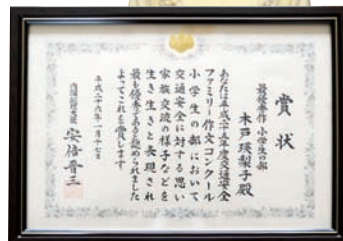 賞状
最優秀作 小学生の部
木戸瑛梨子殿
あなたは平成二十五年度交通安全
ファミリー作文コンクール
小学生の部において
交通安全に対する思い
家族交流の様子などを
生き生きと表現され
最も優秀であると認められました
よってこれを賞します
平成二十六年一月十七日
内閣総理大臣 安倍晋三